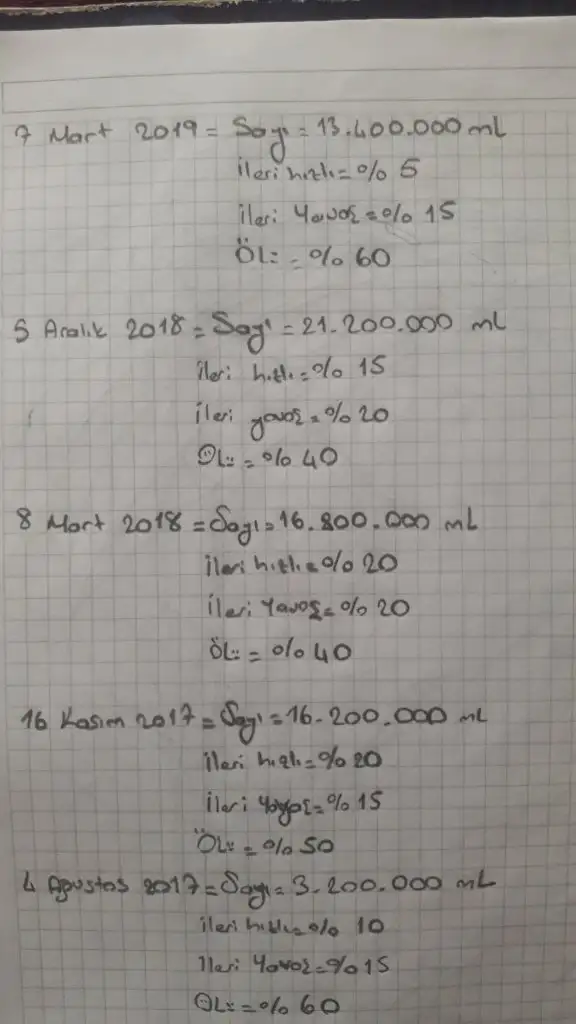 7 Mart 2019 = Sayı = 13.400.000 mL
İleri hızlı = % 5
İleri Yavaş = % 15
Ölü = % 60
5 Aralık 2018 = Sayı = 21.200.000 mL
İleri hızlı = % 15
İleri yavaş = % 20
Ölü = % 40
8 Mart 2018 = Sayı = 16.800.000 mL
İleri hızlı = % 20
İleri Yavaş = % 20
Ölü = % 40
16 Kasım 2017 = Sayı = 16.200.000 mL
İleri hızlı = % 20
İleri Yavaş = % 15
Ölü = % 50
4 Ağustos 2017 = Sayı = 3.200.000 mL
İleri hızlı = % 10
İleri Yavaş = % 15
Ölü = % 60